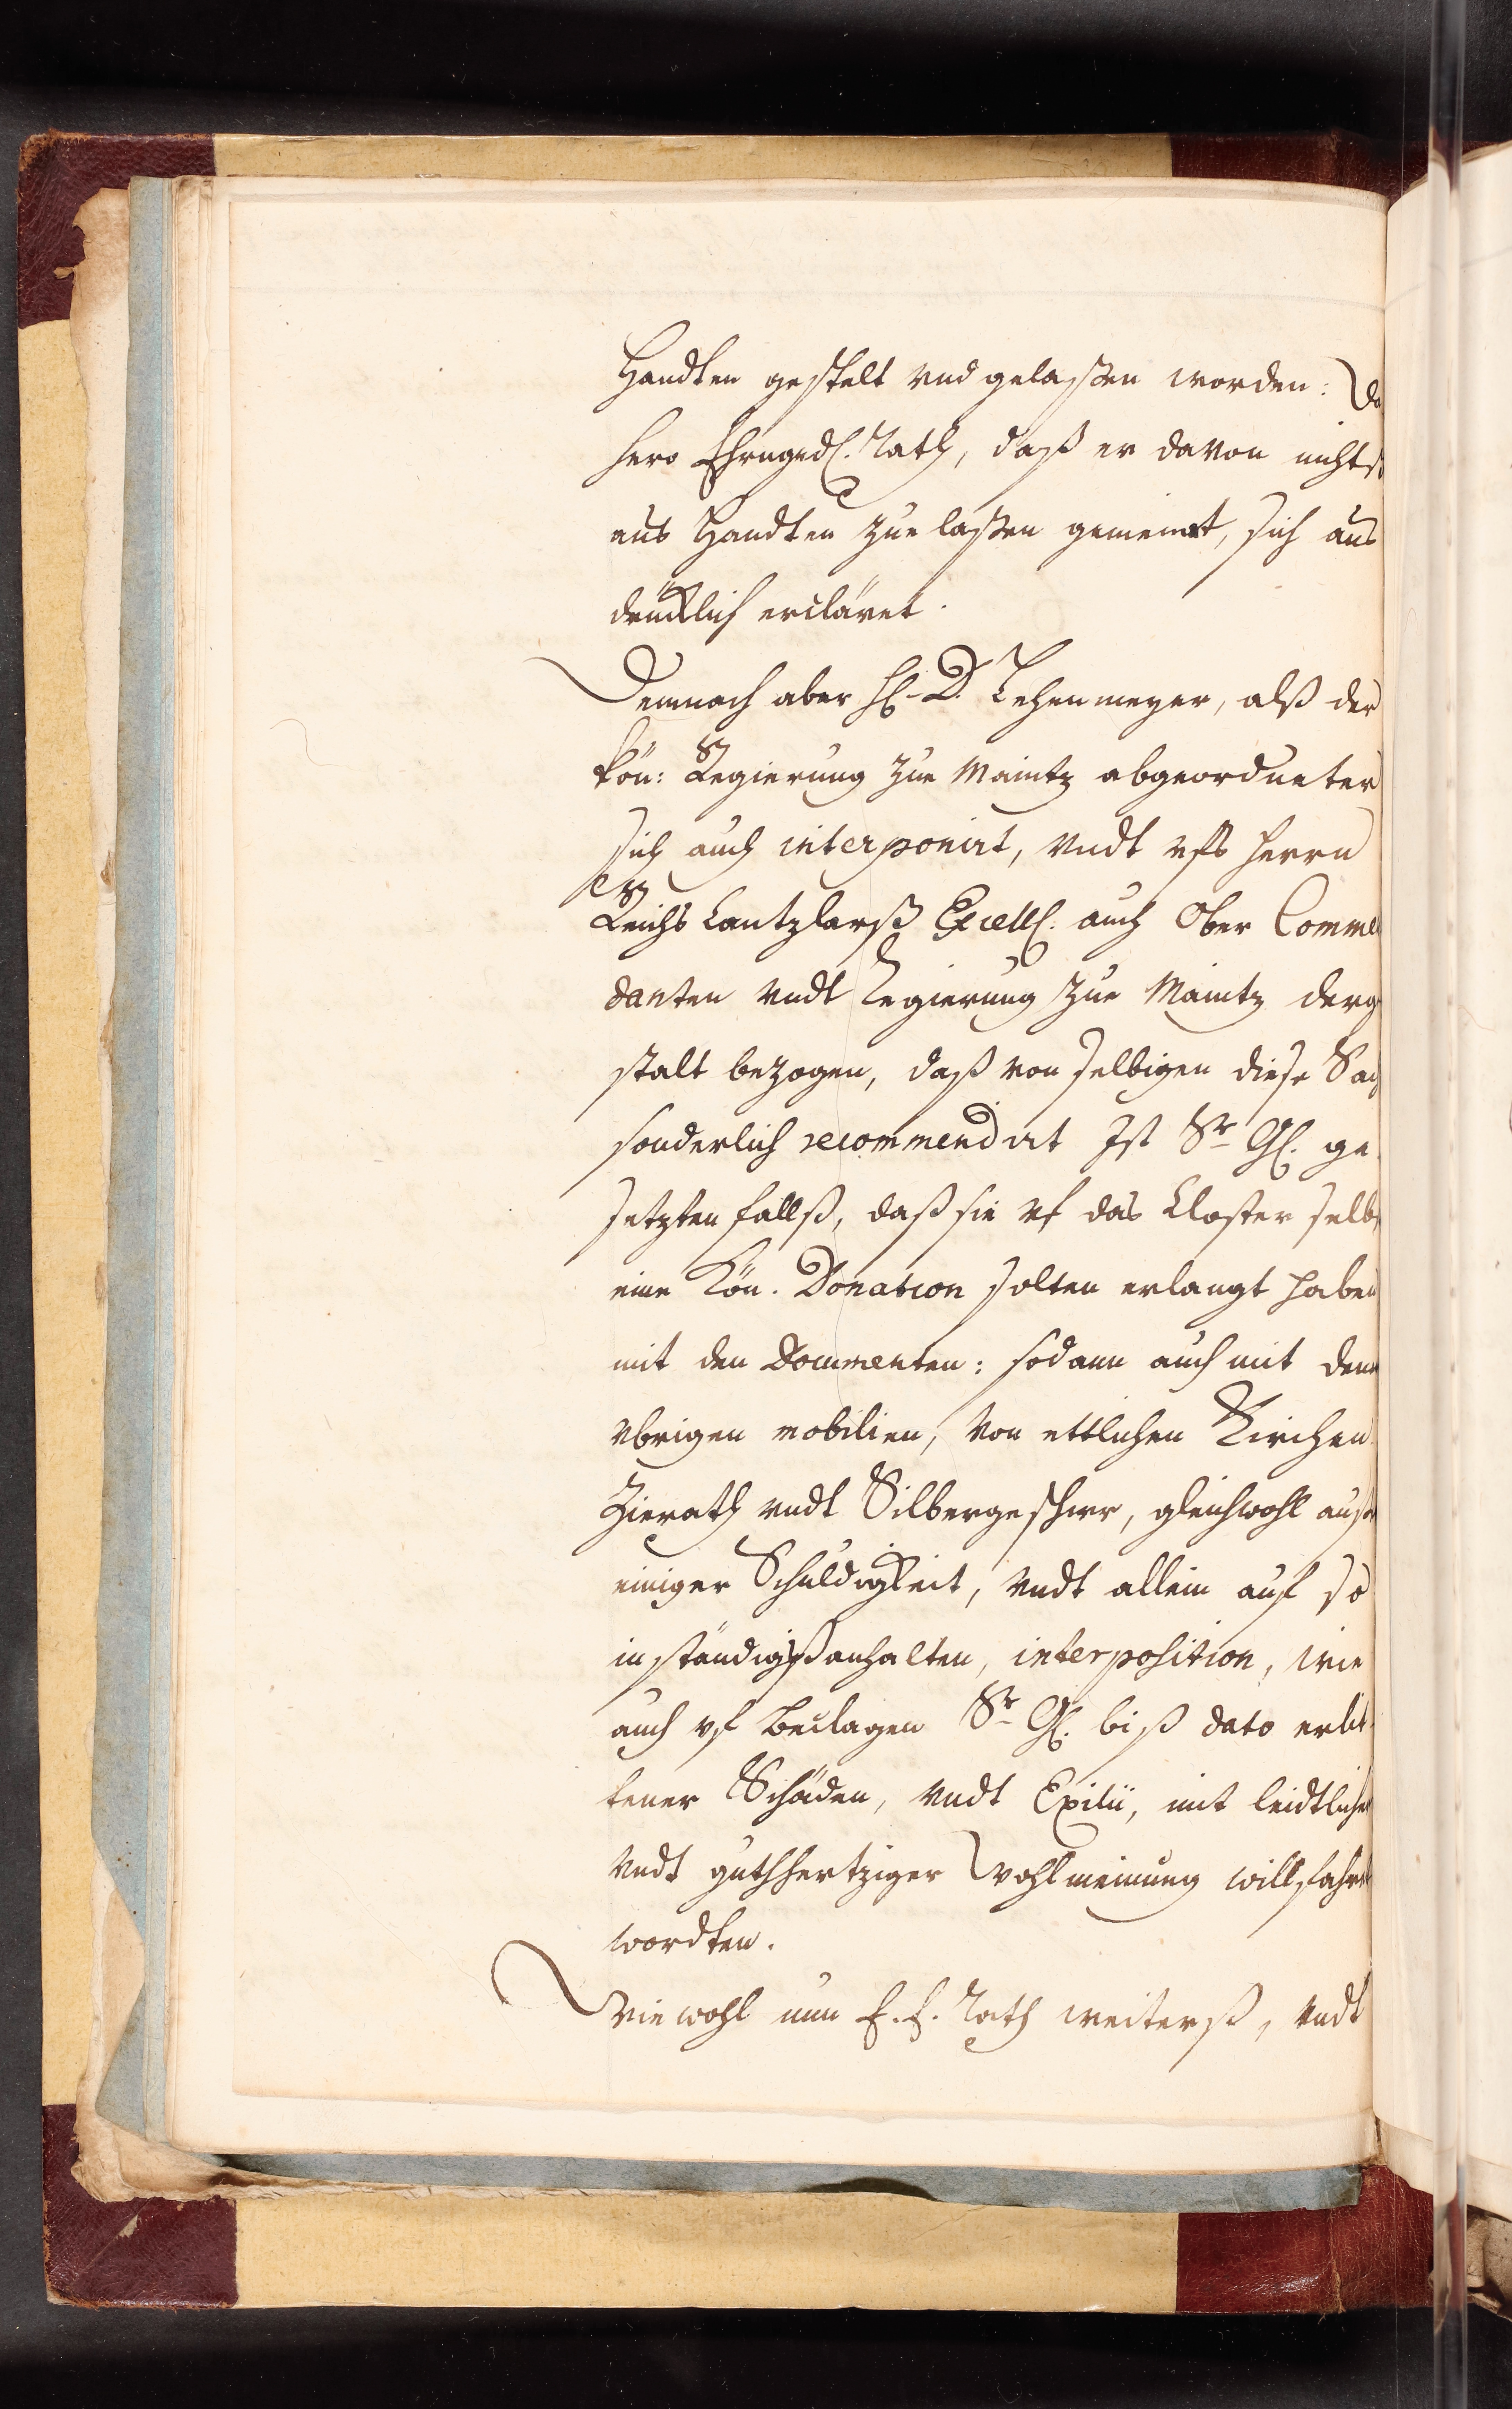 Handten gestelt vnd gelaßen worden: Da
hero Ehrngedl. Rath, daß er davon nichts
aus Handten zue laßen gemeint, sich aus
drücklich ercläret.
Demnach aber Hl. D. Lehenmeyer, alß der
Kön: Regierung zue Maintz abgeordneter
sich auch interponirt, vndt vfs Herrn
Reichs Cantzlarß Excell. auch Ober Comme
danten vndt Regierung zue Maintz derg
stalt bezogen, daß von selbigen diese Sach
sonderlich recommendirt Ist Sr Gl. ge
setzten fallß, daß sie vf das Closter selbs
eine Kön. Donation solten erlangt haben
mit den Documenten: sodann auch mit denn
vbrigen mobilien, von ettlichen Kirchen
Zierath vndt Silbergeschirr, gleichwohl auß
einiger Schuldigkeit, vndt allein auf so
inständigß anhalten, interposition, wie
auch vf beclagen Sr Gl. biß dato erlit
tener Schäden, vndt Exilii, mit leidtlicher
vndt guthhertziger Wohlmeinung willfahrt
wordten.
Wie wohl nun E. E. Rath weiterß, vndt